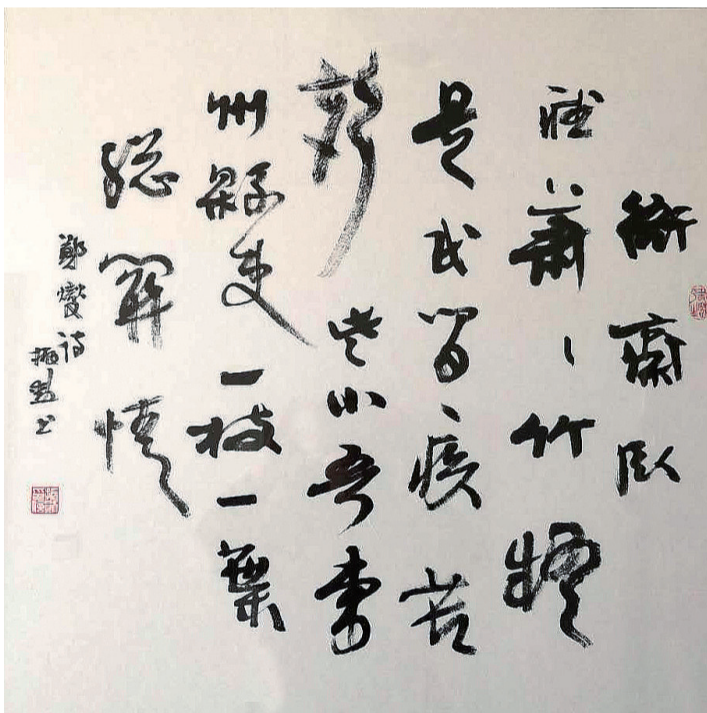 衙齋臥
聽蕭〻竹疑
是民間疾苦
聲些小吾曹
州縣吏一枝一葉
總關情
鄭燮詩
振書